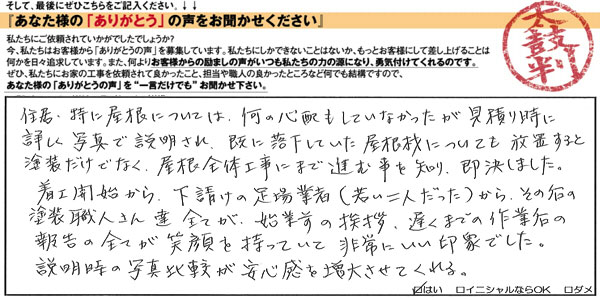 そして、最後にぜひこちらをご記入ください。↓↓
『あなた様の「ありがとう」の声をお聞かせください』
私たちにご依頼されていかがでしたでしょうか?
今、私たちはお客様から「ありがとうの声」を募集しています。私たちにしかできないことはないか、もっとお客様にして差し上げることは
何かを日々追求しています。また、何よりお客様からの励ましの声がいつも私たちの力の源になり、勇気付けてくれるのです。
ぜひ、私たちにお家の工事を依頼されて良かったこと、担当や職人の良かったところなど何でも結構ですので、
あなた様の「ありがとうの声」を“一言だけでも”お聞かせ下さい。
太鼓判
住居・特に屋根については、何の心配もしていなかったが見積り時に
詳しく写真で説明され、既に落下していた屋根材についても放置すると
塗装だけでなく、屋根全体工事にまで進む事を知り、即決しました。
着工開始から、下請けの足場業者(若い二人だった)から、その后の
塗装職人さん達全てが、始業前の挨拶、遅くまでの作業后の
報告の全てが笑顔を持っていて非常にいい印象でした。
説明時の写真比較が安心感を増大させてくれる。
はい ロイニシャルならOK ロダメ